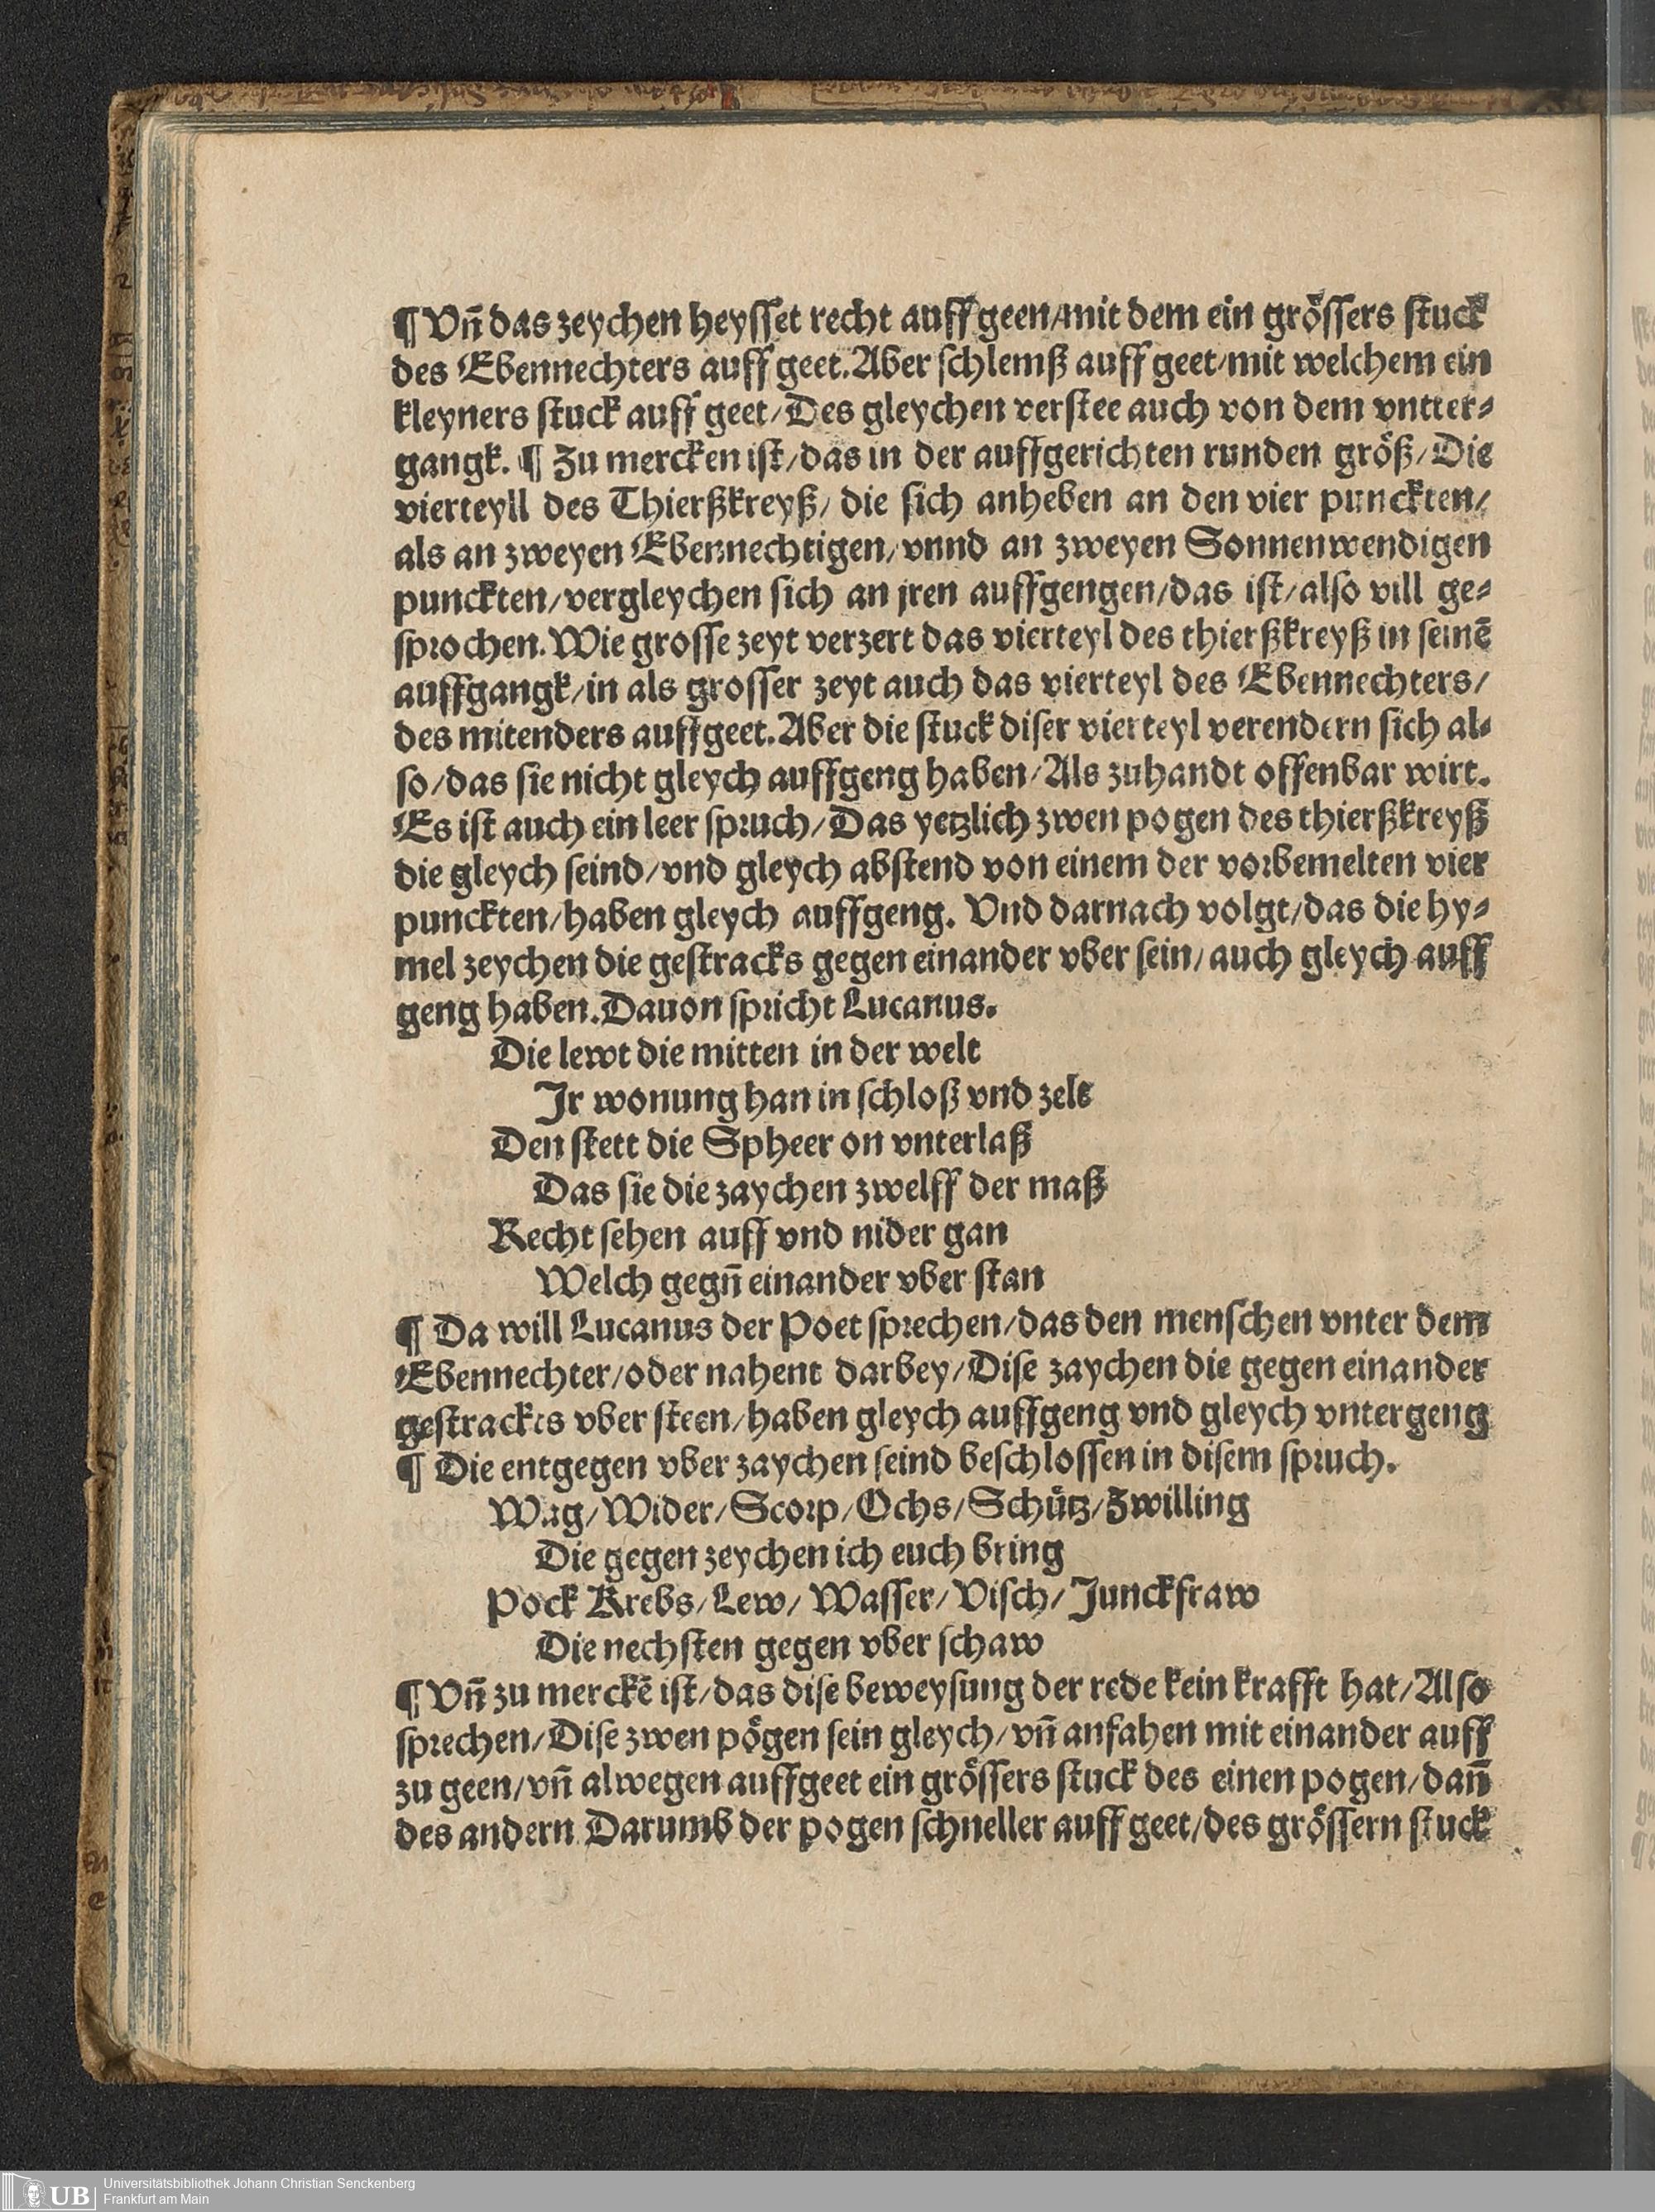 ¶ Vn̄ das zeychen heyſſet recht auff geen/mit dem ein gröſſers ſtuck
des Ebennechters auff geet. Aber ſchlemß auff geet/mit welchem ein
kleyners ſtuck auff geet/Des gleychen verſtee auch von dem vntter⸗
gangk. ¶ Zu mercken iſt/das in der auffgerichten runden größ/Die
vierteyll des Thierßkreyß/ die ſich anheben an den vier punckten/
als an zweyen Ebennechtigen/vnnd an zweyen Sonnenwendigen
punckten/vergleychen ſich an jren auffgengen/das iſt/alſo vill ge⸗
ſprochen. Wie groſſe zeyt verzert das vierteyl des thierßkreyß in ſeinē
auffgangk/in als groſſer zeyt auch das vierteyl des Ebennechters/
des mitenders auffgeet. Aber die ſtuck diſer vierteyl verendern ſich al⸗
ſo/das ſie nicht gleych auffgeng haben/Als zuhandt offenbar wirt.
Es iſt auch ein leer ſpruch/Das yetzlich zwen pogen des thierßkreyß
die gleych ſeind/vnd gleych abſtend von einem der vorbemelten vier
punckten/haben gleych auffgeng. Vnd darnach volgt/das die hy⸗
mel zeychen die geſtracks gegen einander vber ſein/auch gleych auff
geng haben. Dauon ſpricht Lucanus.
Die lewt die mitten in der welt
Jr wonung han in ſchloß vnd zelt
Den ſtett die Spheer on vnterlaß
Das ſie die zaychen zwelff der maß
Recht ſehen auff vnd nider gan
Welch gegn̄ einander vber ſtan
¶ Da will Lucanus der Poet ſprechen/das den menſchen vnter dem
Ebennechter/oder nahent darbey/Diſe zaychen die gegen einander
geſtrackts vber ſteen/haben gleych auffgeng vnd gleych vntergeng
¶ Die entgegen vber zaychen ſeind beſchloſſen in diſem ſpruch.
Wag/Wider/Scorp/Ochs/Schütz/Zwilling
Die gegen zeychen ich euch bring
Pock Krebs/Lew/Waſſer/Viſch/Junckfraw
Die nechſten gegen vber ſchaw
¶ Vn̄ zu merckē iſt/das diſe beweyſung der rede kein krafft hat/Alſo
ſprechen/Diſe zwen pögen ſein gleych/vn̄ anfahen mit einander auff
zu geen/vn̄ alwegen auffgeet ein gröſſers ſtuck des einen pogen/dan̄
des andern Darumb der pogen ſchneller auff geet/des gröſſern ſtuck
UB
Universitätsbibliothek Johann Christian Senckenberg
Frankfurt am Main